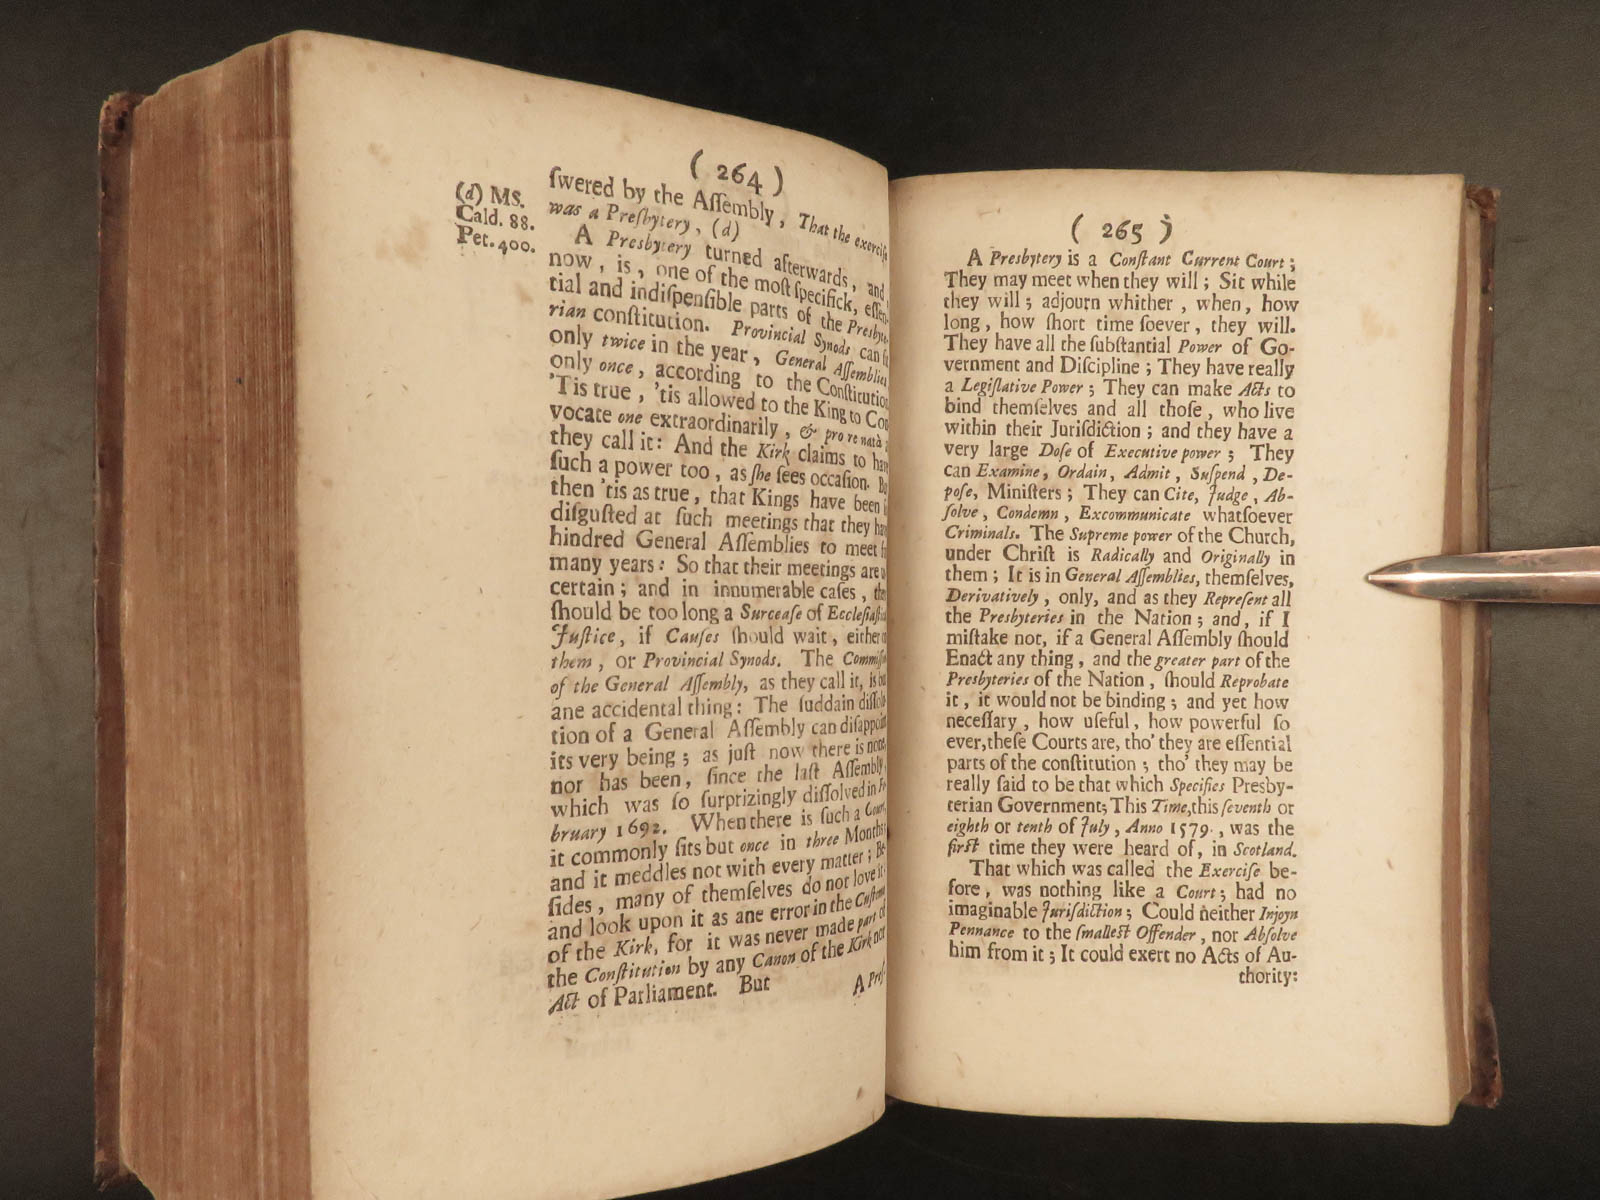 ( 264 )
(d) MS.
Cald. 88.
Pet. 400.
ſwered by the Aſſembly, That the exerciſe
was a Preſbytery, (d)
A Presbytery turned afterwards, and,
now, is, one of the moſt ſpecifick, eſſen-
tial and indiſpenſible parts of the Presbyte-
rian conſtitution. Provincial Synods can
only twice in the year, General Aſſemblies
only once, according to the Conſtitution,
'Tis true, 'tis allowed to the King to Con
vocate one extraordinarily, & pro re natà
they call it: And the Kirk claims to
ſuch a power too, as ſhe ſees occaſion.
then 'tis as true, that Kings have been
diſguſted at ſuch meetings that they
hindred General Aſſemblies to meet
many years: So that their meetings are
certain; and in innumerable caſes,
ſhould be too long a Surceaſe of
Juſtice, if Cauſes ſhould wait, either
them, or Provincial Synods. The
of the General Aſſembly, as they call it, is
ane accidental thing: The ſuddain
tion of a General Aſſembly can
its very being; as juſt now there is none,
nor has been, ſince the laſt Aſſembly,
which was ſo ſurprizingly diſſolved in
bruary 1692. When there is ſuch a
it commonly ſits but once in three
and it meddles not with every matter;
ſides, many of themſelves do not love it,
and look upon it as ane error in the
of the Kirk, for it was never made part of
the Conſtitution by any Canon of the Kirk nor
Act of Parliament. But
A
( 265 )
A Presbytery is a Conſtant Current Court;
They may meet when they will; Sit while
they will; adjourn whither, when, how
long, how ſhort time ſoever, they will.
They have all the ſubſtantial Power of Go-
vernment and Diſcipline; They have really
a Legiſlative Power; They can make Acts to
bind themſelves and all thoſe, who live
within their Juriſdiction; and they have a
very large Doſe of Executive power; They
can Examine, Ordain, Admit, Suſpend, De-
poſe, Miniſters; They can Cite, Judge, Ab-
ſolve, Condemn, Excommunicate whatſoever
Criminals. The Supreme power of the Church,
under Chriſt is Radically and Originally in
them; It is in General Aſſemblies, themſelves,
Derivatively, only, and as they Repreſent all
the Presbyteries in the Nation; and, if I
miſtake not, if a General Aſſembly ſhould
Enact any thing, and the greater part of the
Presbyteries of the Nation, ſhould Reprobate
it, it would not be binding; and yet how
neceſſary, how uſeful, how powerful ſo
ever, theſe Courts are, tho' they are eſſential
parts of the conſtitution; tho' they may be
really ſaid to be that which Specifies Presby-
terian Government; This Time, this ſeventh or
eighth or tenth of July, Anno 1579., was the
firſt time they were heard of, in Scotland.
That which was called the Exerciſe be-
fore, was nothing like a Court; had no
imaginable Juriſdiction; Could neither Injoyn
Pennance to the ſmalleſt Offender, nor Abſolve
him from it; It could exert no Acts of Au-
thority: